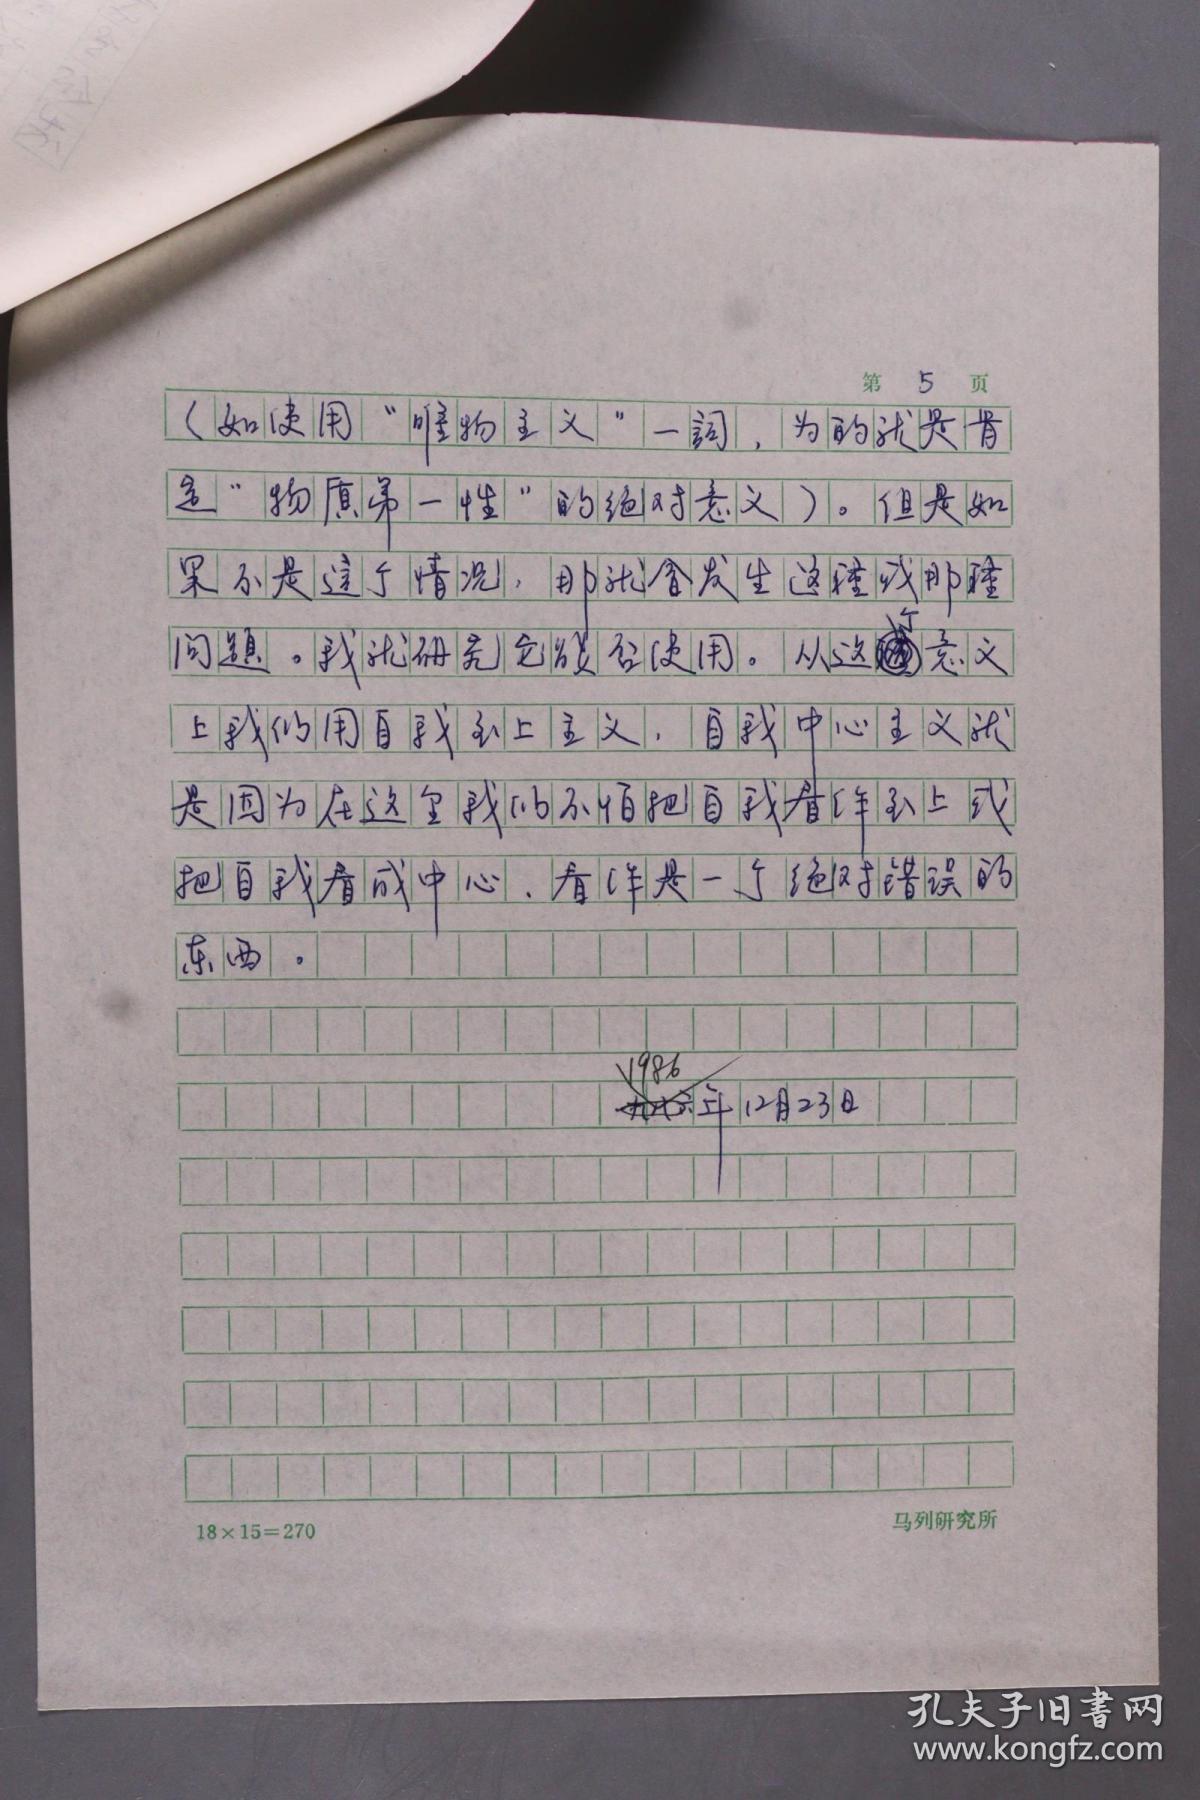 第 5 页
（如使用“唯物主义”一詞，为的就是肯
定“物质第一性”的绝对意义）。但是如
果不是這个情况，那就会发生这種或那種
问题。我就研究它能否使用。从这个意义
上我们用自我至上主义，自我中心主义就
是因为在这里我们不怕把自我看作至上或
把自我看成中心，看作是一个绝对错误的
东西。
1986
年12月23日
18×15=270
马列研究所
孔夫子旧書网
www.kongfz.com